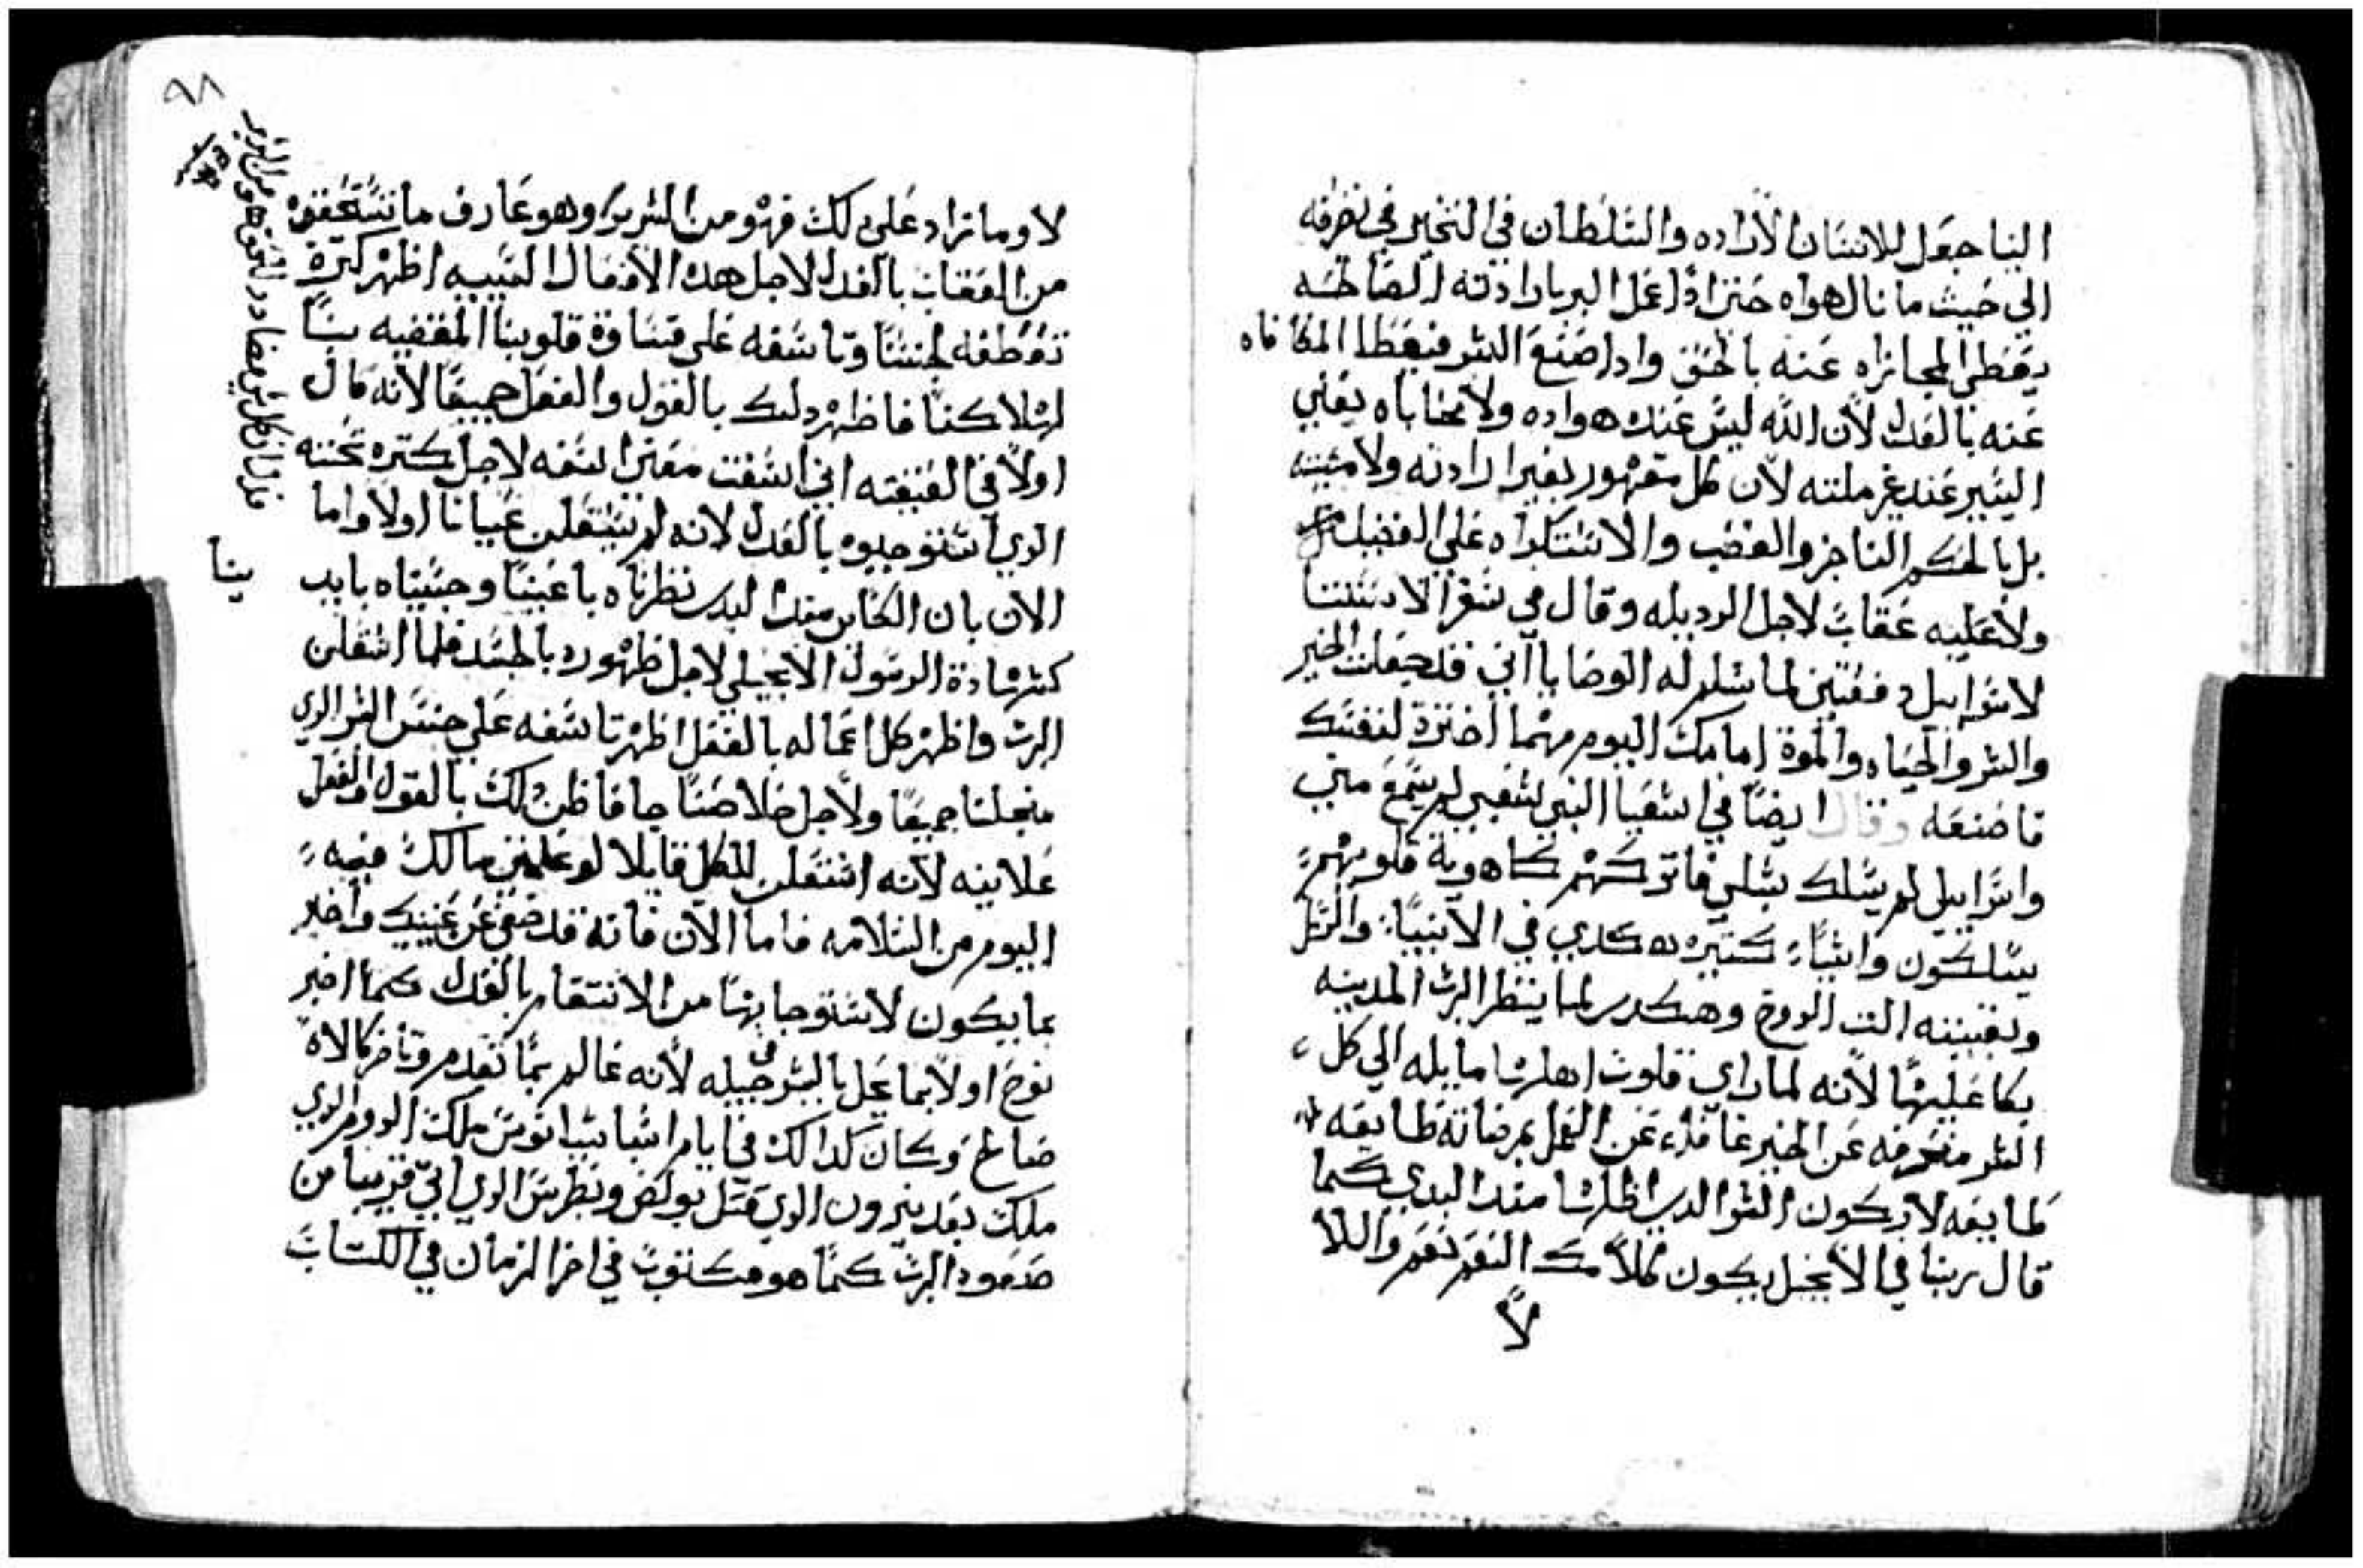 الينا جعل للانسان الاراده والسلطان في التخير في تصرفه
الي حيث ما نال هواه حتى اذا عمل البر بارادته الصالحه
يعطى المجازاه عنه بالحق واذا صنع الشر فيعطا المكافاه
عنه بالعدل لان الله ليس عنده هواده ولا محاباه يعني
اليسير عند غرملته لان كل مقهور بغير ارادته ولا مشيته
بل بالحكم الناجز والغضب والاستكراه على الفضيله
ولا عليه عقاب لاجل الرديله وقال في سفر الاستثنا
لاسراييل دفعتين لما سلم له الوصايا اني قد جعلت الخير
والشر والحياه والموة امامك اليوم مهما اخترة لنفسك
فاصنعه وقال ايضا في اشعيا النبي شعبي لم يسمع مني
واسراييل لم يسلك سبلي فاتركهم كاهوية قلوبهم
يسلكون واشيا كتيره هكدي في الانبيا والرسل
وبقيته الت الروح وهكدي لما ينظر الرب المدينه
بكا عليها لانه لما راي قلوب اهلها مايله الي كل
الشر منحرفه عن الخير غافله عن العمل بمرضاته طايعه
طايعه لاركون الشر الدي اظلها مند البدي كما
قال ربنا في الانجيل يكون كلامك النعم نعم واللا
لا
٩٨
لا وما زاد على دلك فهو من الشرير وهو عارف ما نستحقه
من العقاب بالعدل لاجل هده الافعال السيه اظهر كترة
تعطفه لجنسنا وتاسفه على قساوة قلوبنا المفضيه بنا
لهلاكنا فاظهر دلك بالقول والفعل جميعا لانه قال
اولا في العتيقه اني اسفت معنى اسفه لاجل كتره تحننه
الدي استوجبوه بالعدل لانه لم يستعلن عيانا اولا واما
الان بان الكاين مند البدى نظرناه باعيننا وجسيناه بايد
ينا
كشهادة الرسول الانجيلي لاجل ظهوره بالجسد فلما استعلن
الرب واظهر كل اعماله بالفعل اظهر تاسفه على جنس البشر الدي
من اجلنا جميعا ولاجل خلاصنا جا فاظهر دلك بالقول والفعل
علانيه لانه استعلن للكل قايلا لو علمتي مالك فيه
اليوم من السلامه فاما الان فانه قد خفي عن عينيك واخبر
بما يكون لاستوجابها من الانتقام بالعدل كما اخبر
نوح اولا بما يحل بالبشر في جيله لانه عالم بما تقدم وتاخر كالاه
صالح وكان كدالك في ايام اسباسيانوس ملك الروم الدي
ملك بعد نيرون الدي قتل بولص وبطرس الدي اتي قريبا من
صعود الرب كما هو مكتوب في اخر الزمان في الكتاب